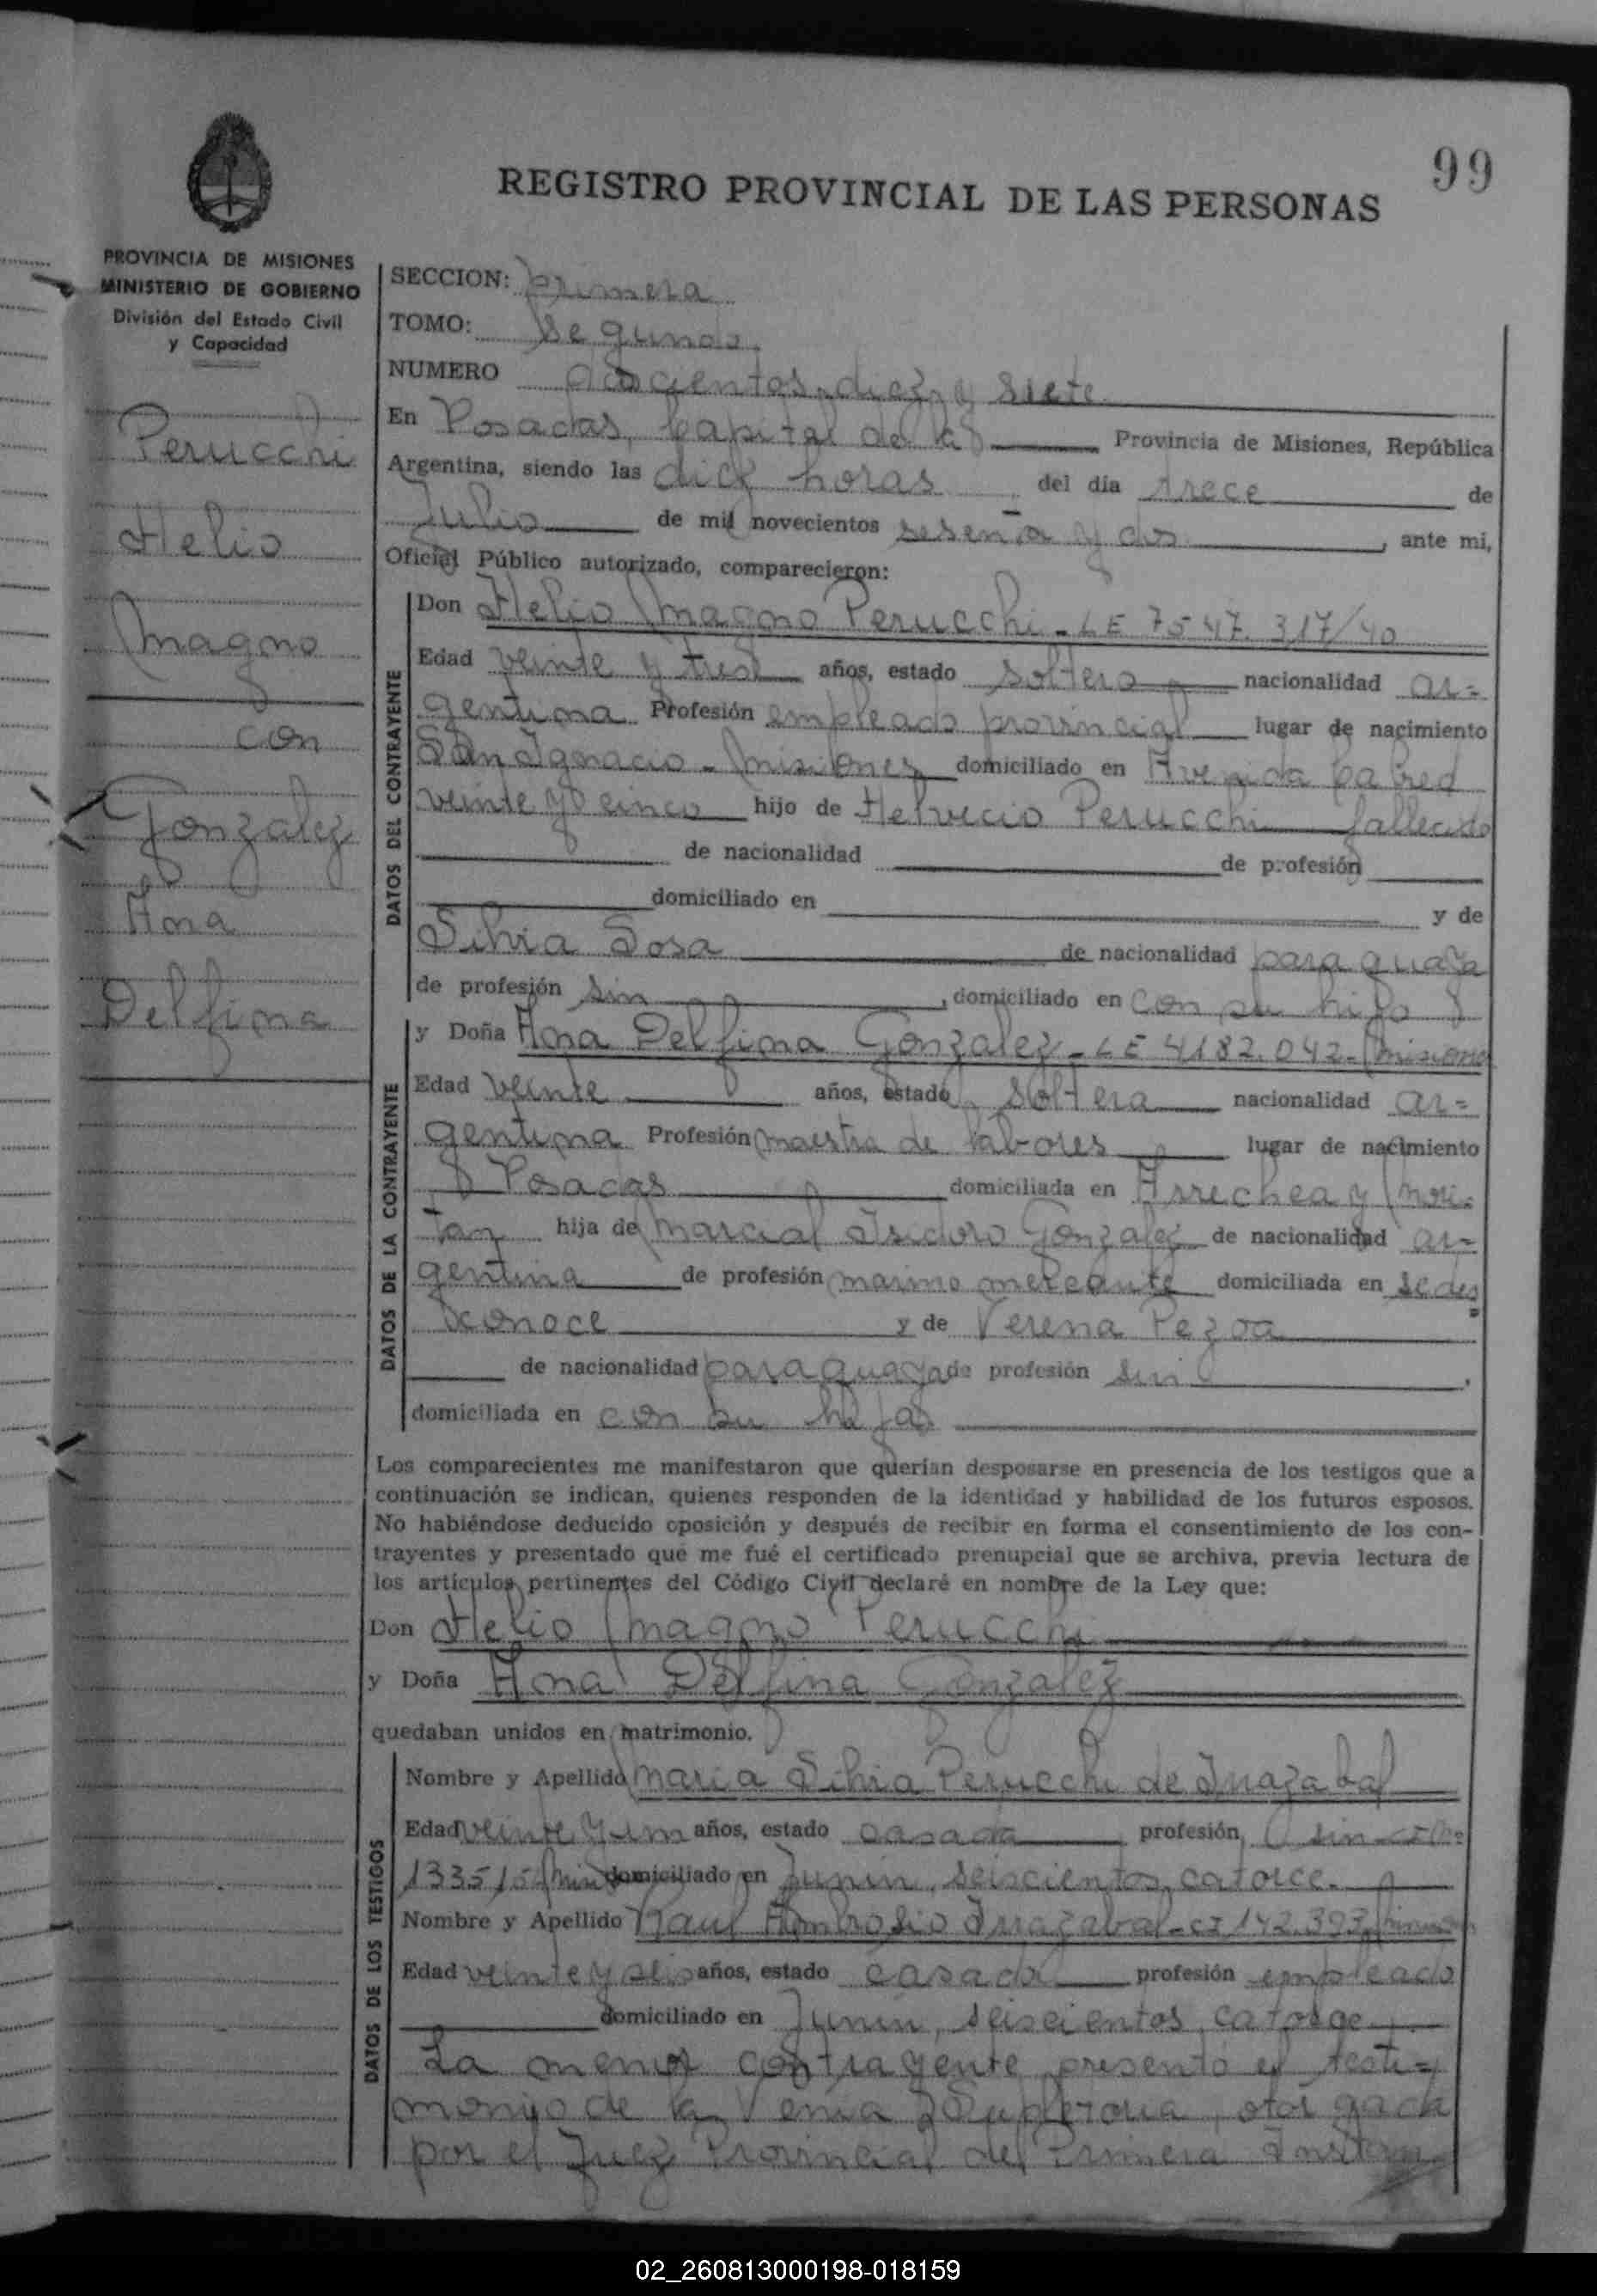 99
REGISTRO PROVINCIAL DE LAS PERSONAS
PROVINCIA DE MISIONES
MINISTERIO DE GOBIERNO
División del Estado Civil
y Capacidad
Perucchi
Helio
Magno
con
Gonzalez
Ana
Delfina
SECCION: primera
TOMO: segundo
NUMERO doscientos diez y siete
En Posadas, Capital de la Provincia de Misiones, República
Argentina, siendo las diez horas del día trece de
Julio de mil novecientos sesenta y dos, ante mi,
Oficial Público autorizado, comparecieron:
DATOS DEL CONTRAYENTE
Don Helio Magno Perucchi - LE 7547.317/40
Edad veinte y tres años, estado soltero nacionalidad ar=
gentina Profesión empleado provincial lugar de nacimiento
San Ignacio - Misiones domiciliado en Avenida Cabred
veinte y cinco hijo de Helvecio Perucchi fallecido
de nacionalidad de profesión
domiciliado en y de
Silvia Sosa de nacionalidad paraguaya
de profesión sin, domiciliado en con su hijo
DATOS DE LA CONTRAYENTE
y Doña Ana Delfina Gonzalez - LE 4182.042 - Misiones
Edad veinte años, estado soltera nacionalidad ar=
gentina Profesión maestra de labores lugar de nacimiento
Posadas domiciliada en Arrechea y
hija de Marcial Isidoro Gonzalez de nacionalidad ar=
gentina de profesión marino mercante domiciliada en se des
conoce y de Verena Pezoa
de nacionalidad paraguaya de profesión sin,
domiciliada en con su hija
Los comparecientes me manifestaron que querían desposarse en presencia de los testigos que a
continuación se indican, quienes responden de la identidad y habilidad de los futuros esposos.
No habiéndose deducido oposición y después de recibir en forma el consentimiento de los con-
trayentes y presentado que me fué el certificado prenupcial que se archiva, previa lectura de
los artículos pertinentes del Código Civil declaré en nombre de la Ley que:
Don Helio Magno Perucchi
y Doña Ana Delfina Gonzalez
quedaban unidos en matrimonio.
DATOS DE LOS TESTIGOS
Nombre y Apellido Maria Silvia Perucchi de Irazabal
Edad veinte y un años, estado casada profesión sin
domiciliado en Junin, seiscientos catorce.
Nombre y Apellido Raul Ambrosio Irazabal - CI 142.393
Edad veinte y seis años, estado casado profesión empleado
domiciliado en Junin, seiscientos catorce.
La menor contrayente presentó el testi=
monio de la Venia Supletoria, otorgada
por el Juez Provincial de Primera
02_260813000198-018159